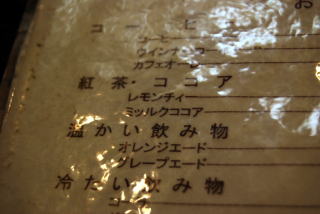 お
コーヒー
コーヒー
ウインナーコー
カフェオーレ
紅茶・ココア
レモンティー
ミルクココア
温かい飲み物
オレンジエード
グレープエード
冷たい飲み物
コー